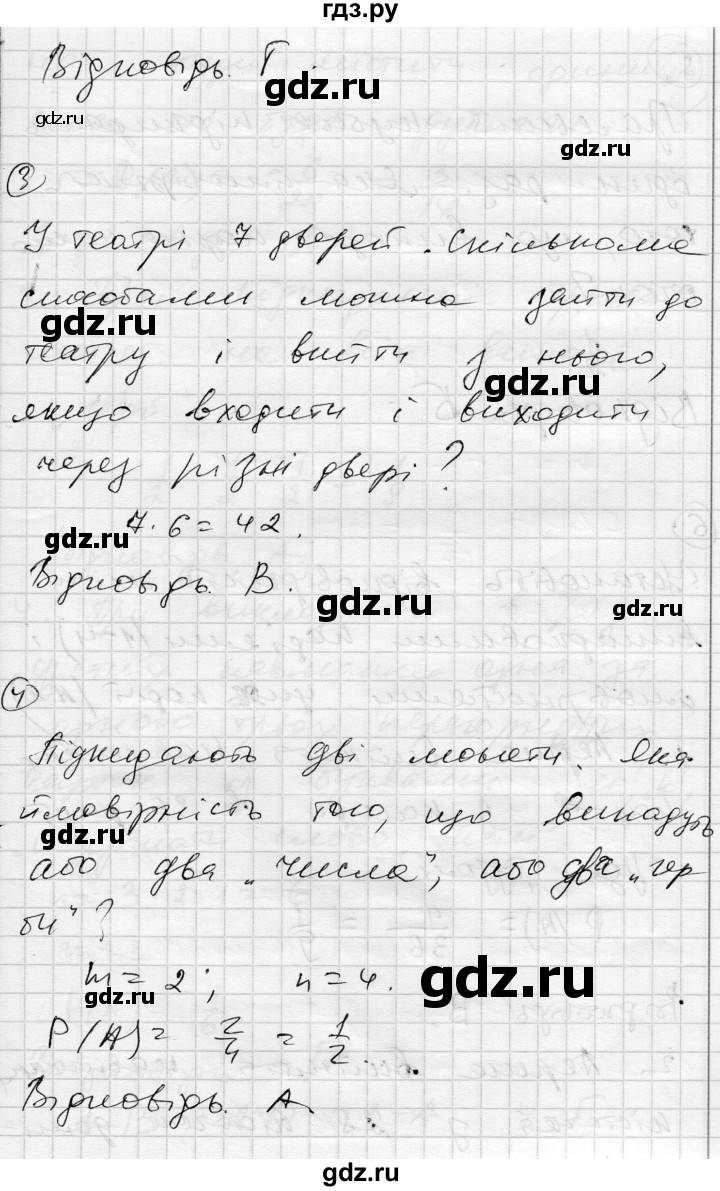 гдз.ру
Відповідь. Г.
gdz.ru
gdz.ru
gdz.ru
③
У театрі 7 дверей. Скількома
способами можна зайти до
gdz.ru
театру і вийти з нього,
gdz.ru
якщо входити і виходити
через різні двері?
7·6=42.
gdz.ru
Відповідь. В.
gdz.ru
④
Підкидають дві монети. Яка
ймовірність того, що випадуть
gdz.ru
або два „числа", або два „гер
би"?
m=2; n=4.
gdz.ru
gdz.ru
P(A)= 2/4 = 1/2.
Відповідь. А.
gdz.ru